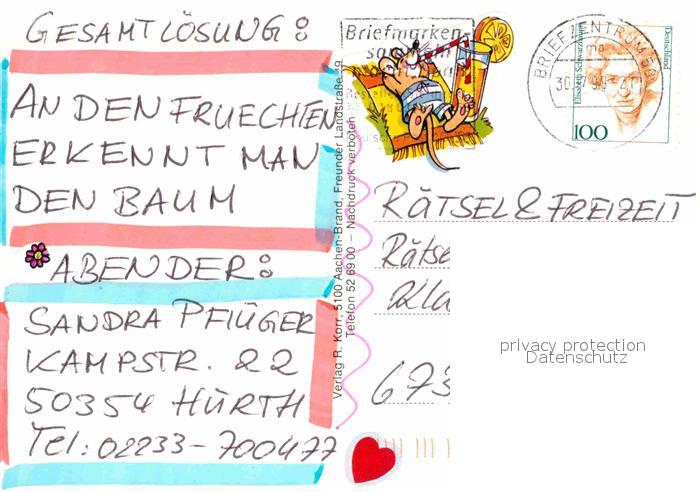 GESAMTLÖSUNG:
AN DEN FRUECHTEN
ERKENNT MAN
DEN BAUM
ABENDER:
SANDRA PFLÜGER
KAMPSTR. 22
50354 HÜRTH
Tel: 02233-700477
Verlag R. Korr, 5100 Aachen-Brand, Freunder Landstraße
Telefon 52 69 00 – Nachdruck verboten
Briefmarken-
BRIEFZENTRUM 50
Elisabeth Schwarzhaupt
Deutschland
100
RÄTSEL & FREIZEIT
Rätse
Kla
673
privacy protection
Datenschutz